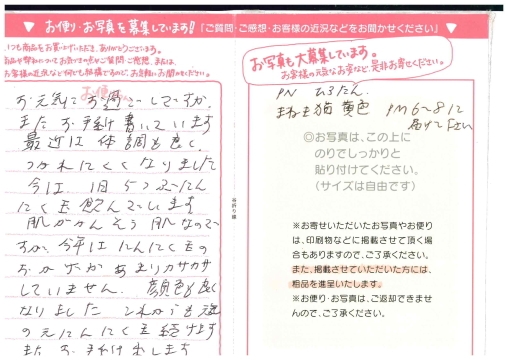 ▼ お便り・お写真を募集しています!!「ご質問・ご感想・お客様の近況などをお聞かせください」 ▼
いつも商品をお買い上げいただき、ありがとうございます。
商品や弊社についてお気づきの点やご質問・ご感想、または、
お客様の近況など何でも結構ですので、お気軽にお聞かせください。
お元気にお過ごしですか。
またお手紙書いています
最近は体調も良く、
つかれにくくなりました
今は1日5つぶにん
にく玉飲んでいます
肌がかんそう肌なので
すが、今年はにんにく玉の
おかげかあまりカサカサ
していません。顔色も良く
なりました これからも元気
の元にんにく玉を続けます
またお手紙出します
お写真も大募集しています。
お客様の元気なお姿など、是非お寄せください。
PN ひろたん。
まねき猫 黄色 PM6〜8に
届けて下さい
◎お写真は、この上に
のりでしっかりと
貼り付けてください。
(サイズは自由です)
※お寄せいただいたお写真やお便り
は、印刷物などに掲載させて頂く場
合もありますので、ご了承ください。
また、掲載させていただいた方には、
粗品を進呈いたします。
※お便り・お写真は、ご返却できませ
んので、ご了承ください。